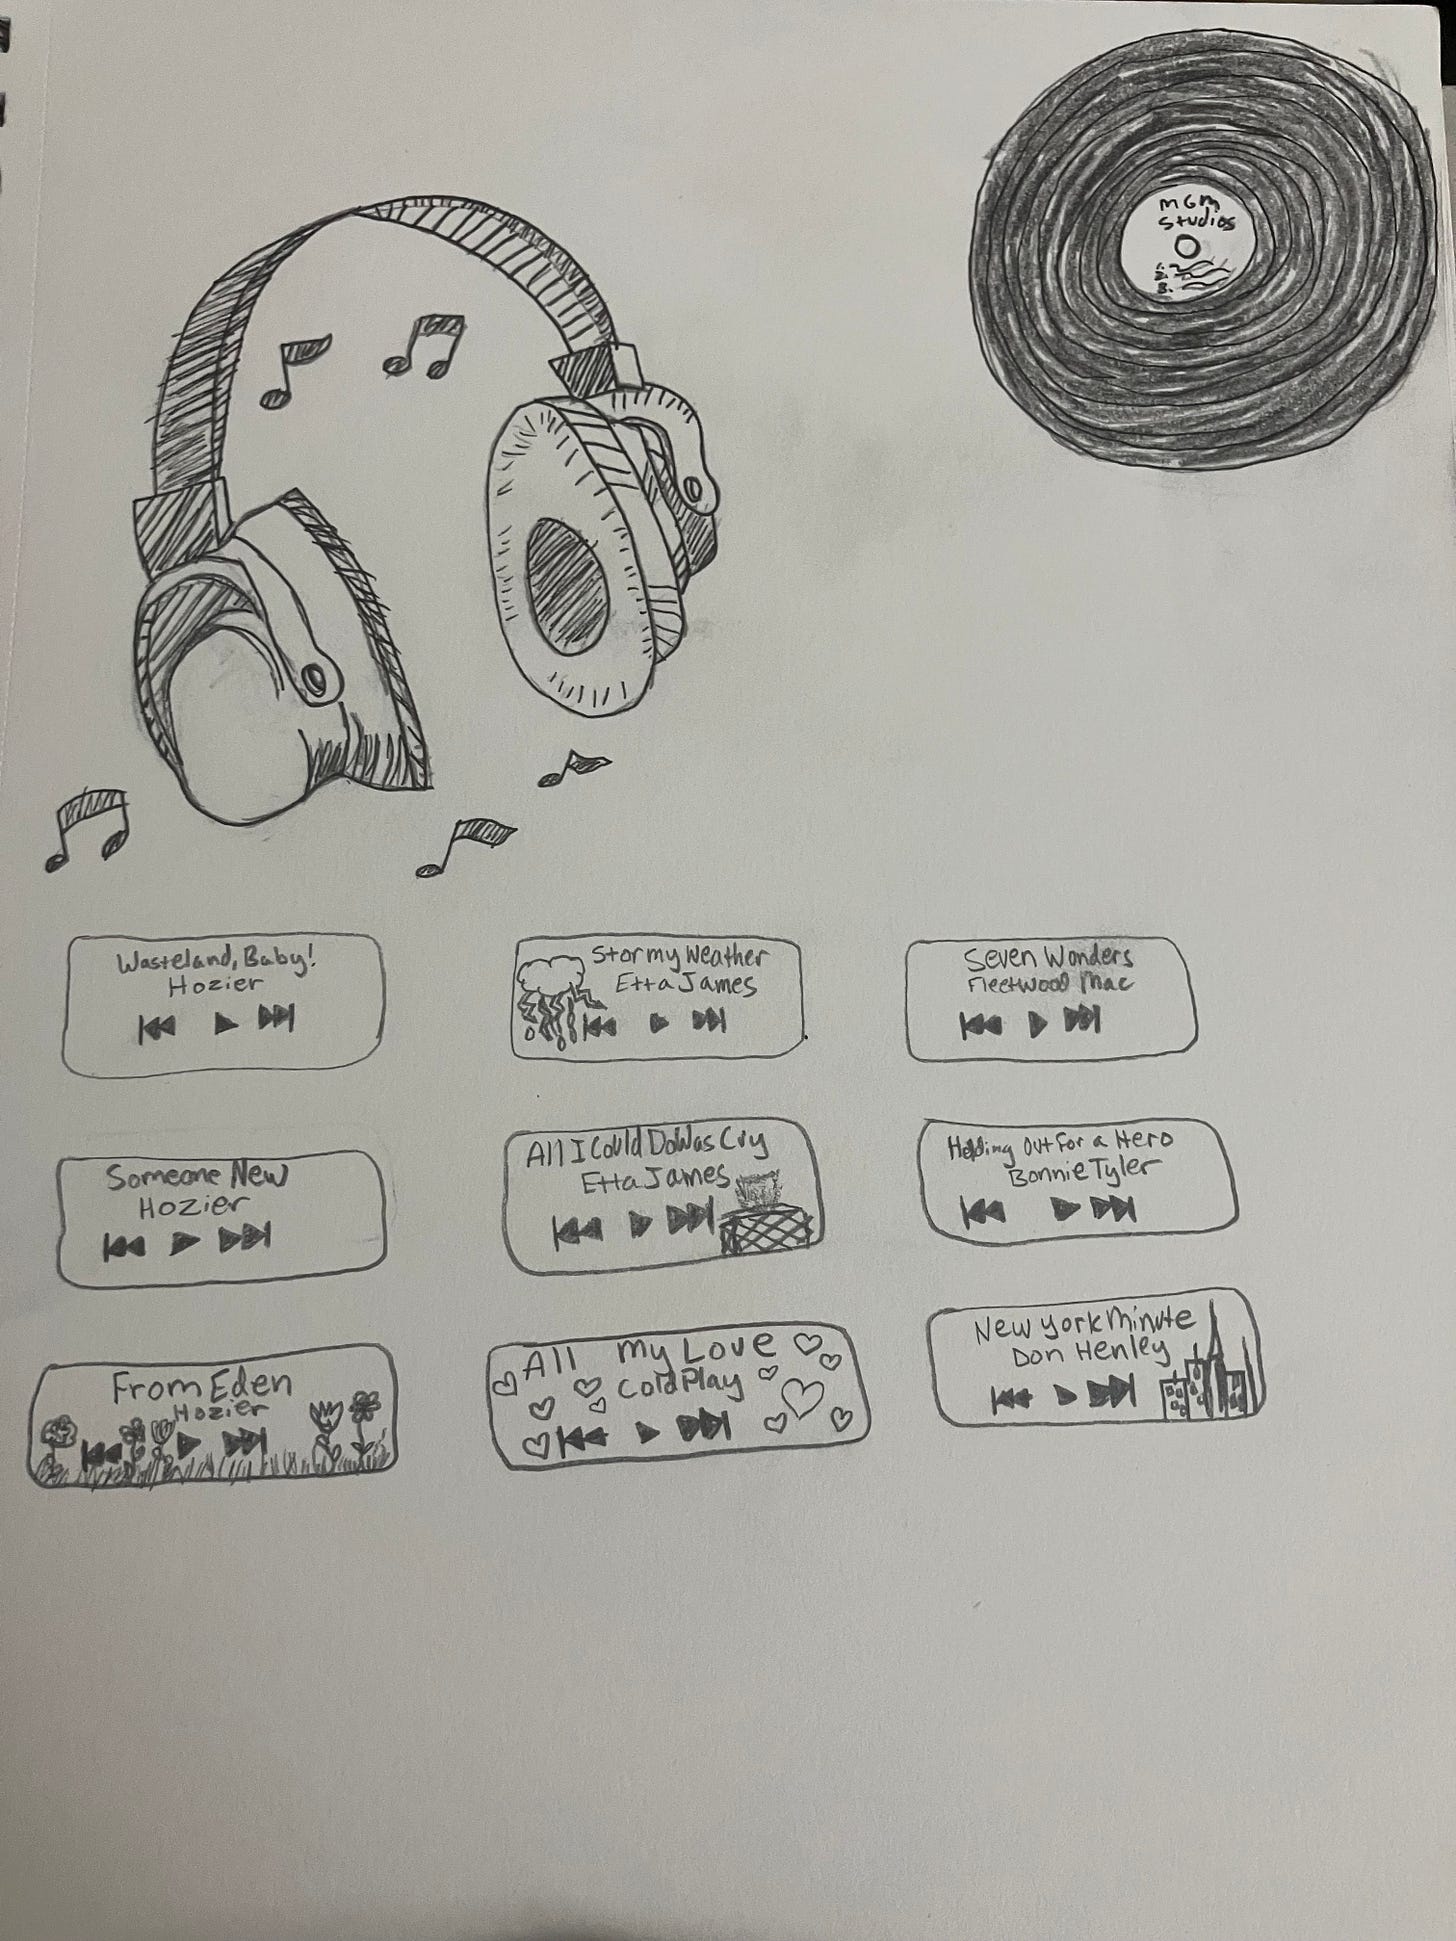 MGM
Studios
1.
2.
3.
Wasteland, Baby!
Hozier
Stormy Weather
Etta James
Seven Wonders
Fleetwood Mac
Someone New
Hozier
All I Could Do Was Cry
Etta James
Holding Out For a Hero
Bonnie Tyler
From Eden
Hozier
All My Love
ColdPlay
New York Minute
Don Henley